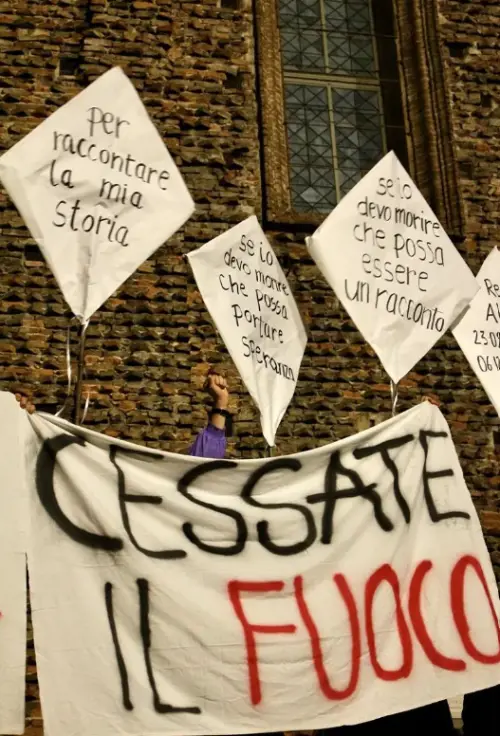 per
raccontare
la mia
storia
se io
devo morire
che possa
portare
speranza
se io
devo morire
che possa
essere
un racconto
Re
23.09
06.12
CESSATE
IL FUOCO